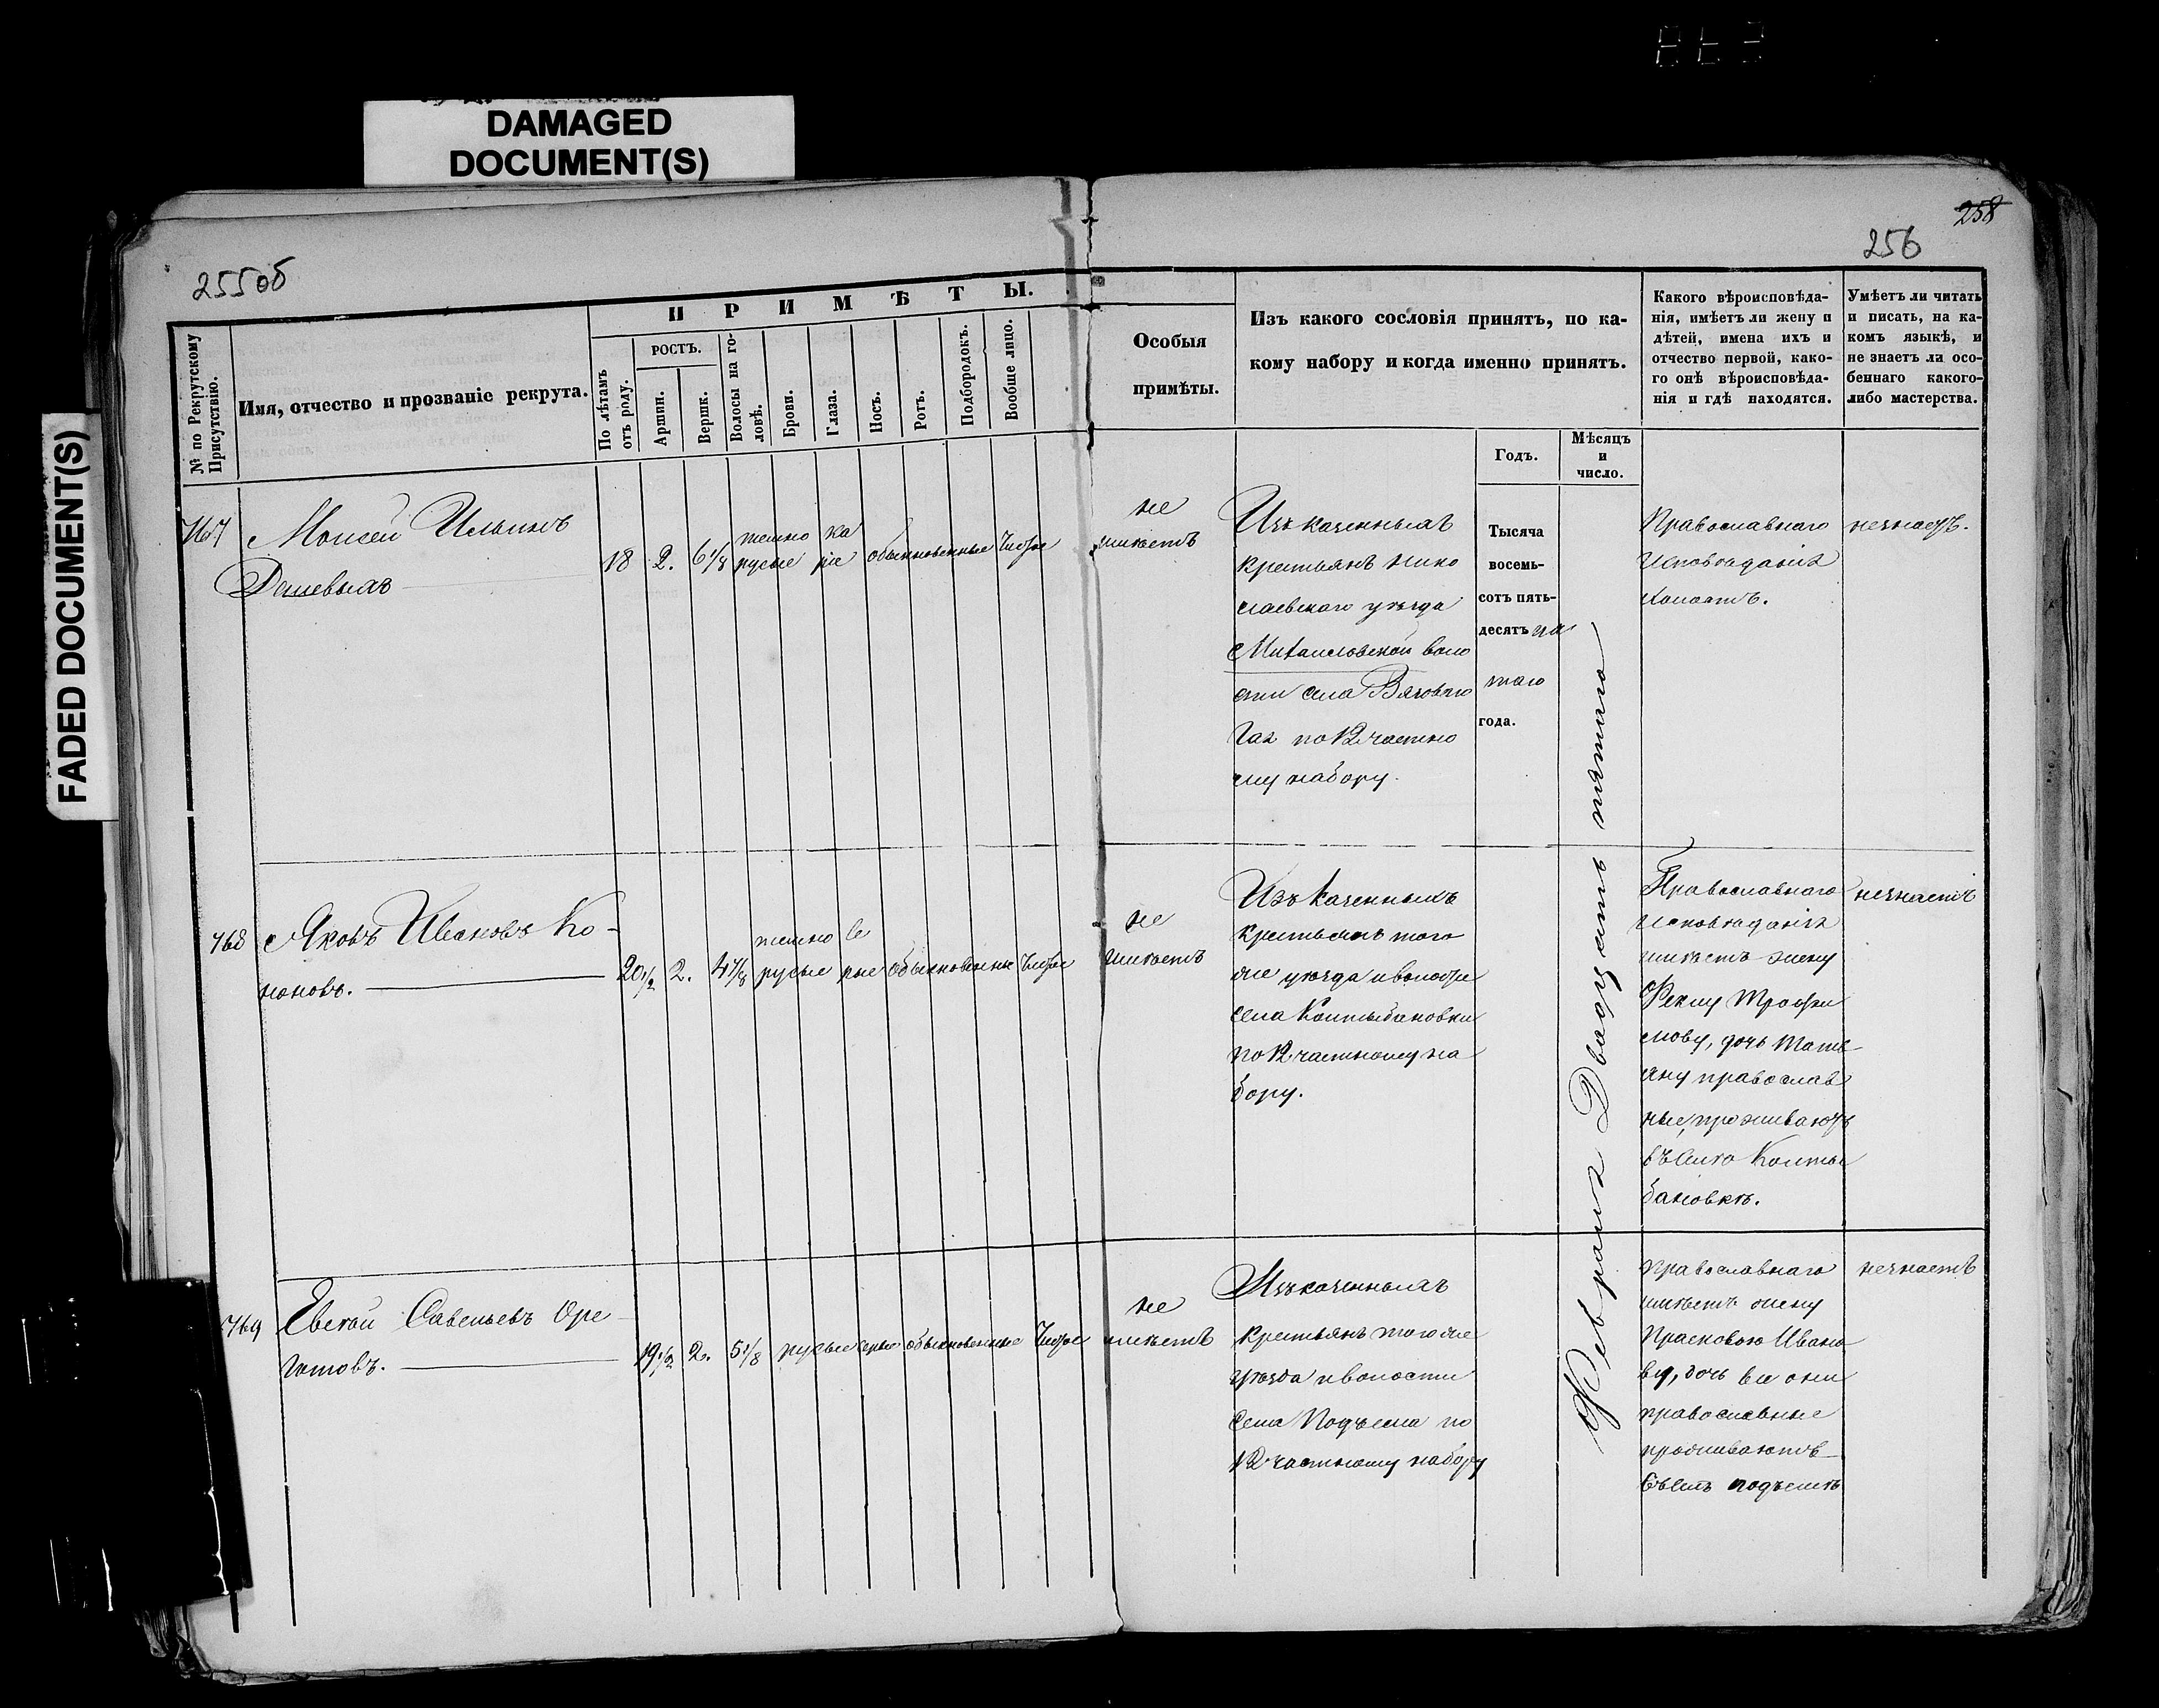 DAMAGED
DOCUMENT(S)
FADED DOCUMENT(S)
255об
258
256
ПРИМѢТЫ.
№ по Рекрутскому
Присутствію.
Имя, отчество и прозваніе рекрута.
По лѣтамъ
отъ роду.
РОСТЪ.
Аршин.
Вершк.
Волосы на го-
ловѣ.
Брови.
Глаза.
Носъ.
Ротъ.
Подбородокъ.
Вообще лицо.
Особыя
примѣты.
Изъ какого сословія принятъ, по ка-
кому набору и когда именно принятъ.
Годъ.
Мѣсяцъ
и
число.
Какого вѣроисповѣда-
нія, имѣетъ ли жену и
дѣтей, имена ихъ и
отчество первой, како-
го онѣ вѣроисповѣда-
нія и гдѣ находятся.
Умѣетъ ли читать
и писать, на ка-
комъ языкѣ, и
не знаетъ ли осо-
беннаго какого-
либо мастерства.
767
Моисей Ильинъ
18
2.
6 1/8
темно
русые
ка
ріе
обыкновенные
Чистое
не
имѣетъ
Изъ казенныхъ
крестьянъ Нико
лаевскаго уѣзда
Михаиловской воло
сти села Вязоваго
Гая по 12 частно
му набору.
Тысяча
восемь-
сотъ пять-
десятъ пя
таго
года.
Февраля Двадцать пятаго
Православнаго
исповѣданія
холостъ.
незнаетъ.
768
Яковъ Ивановъ Ко-
ноновъ.
20 1/2
2.
4 7/8
темно
русые
се
рые
обыкновенные
Чистое
не
имѣетъ
Изъ казенныхъ
крестьянъ того
же уѣзда и волости
села Колтыбановки
по 12 частному на
бору.
Православнаго
исповѣданія
имѣетъ жену
Феклу Трофи
мову, дочь Татъ-
яну православ
ные, проживаютъ
въ селѣ Колты
бановкѣ.
незнаетъ
769
Савельевъ Оре
ховъ.
19 1/2
2.
5 1/8
русые
серые
обыкновенные
Чистое
не
имѣетъ
Изъ казенныхъ
крестьянъ того же
уѣзда и волости
села Подъема по
12 частному набору
Православнаго
имѣетъ жену
Прасковью Ивано
ву, дочь все они
православные
проживаютъ
въ селѣ подъемѣ
незнаетъ